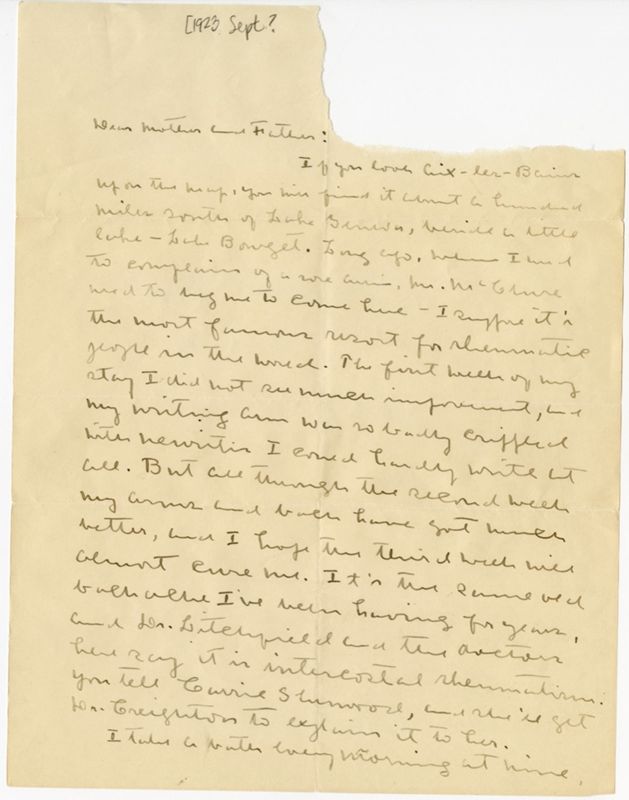 [1923 Sept?
Dear Mother and Father:
If you look Aix-les-Bains
up on the map, you will find it about a hundred
miles south of Lake Geneva, beside a little
lake - Lake Bourget. Long ago, when I used
to complain of a sore arm, Mr. McClure
used to beg me to come here - I suppose it's
the most famous resort for rheumatic
people in the world. The first week of my
stay I did not see much improvement, and
my writing arm was so badly crippled
with neuritis I could hardly write at
all. But all through the second week
my arms and back have got much
better, and I hope the third week will
almost cure me. It's the same old
backache I've been having for years,
and Dr. Litchfield and the doctors
here say it is intercostal rheumatism.
you tell Carrie Sherwood, and she'll get
Dr. Creighton to explain it to her.
I take a bath every morning at nine,